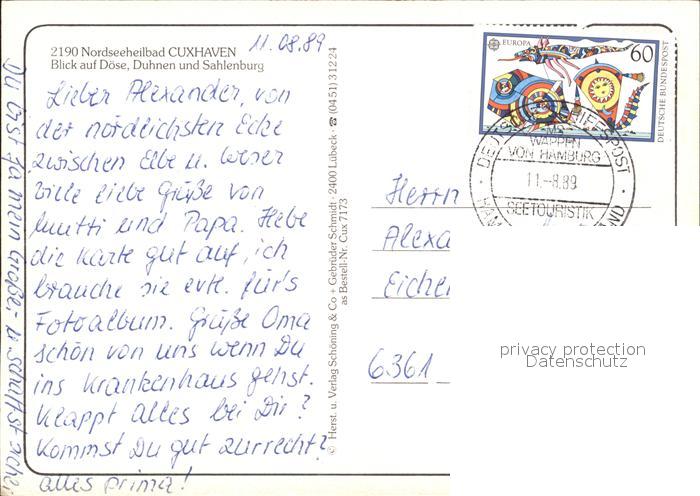 2190 Nordseeheilbad CUXHAVEN
Blick auf Döse, Duhnen und Sahlenburg
11.08.89
Lieber Alexander, von
der nördlichsten Ecke
zwischen Elbe u. Weser
viele liebe Grüße von
Mutti und Papa. Hebe
die Karte gut auf, ich
brauche sie evtl. für's
Fotoalbum. Grüße Oma
schön von uns wenn Du
ins Krankenhaus gehst.
Klappt alles bei Dir?
Kommst Du gut zurrecht?
alles prima!
Du bist ja mein Großer u. schaffst
© Herst. u. Verlag Schöning & Co + Gebrüder Schmidt · 2400 Lübeck · ☎ (0451) 31224
as Bestell-Nr. Cux 7173
EUROPA
60
DEUTSCHE BUNDESPOST
DEUTSCHE SCHIFFSPOST
MS
WAPPEN
VON HAMBURG
11.-8.89
SEETOURISTIK
Herrn
Alexa
Eichen
6361
privacy protection
Datenschutz